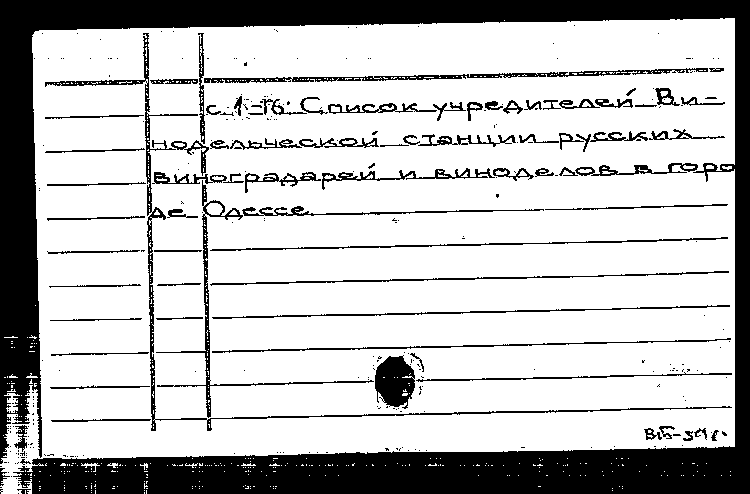 с. 1-16: Список учредителей Ви-
нодельческой станции русских
виноградарей и виноделов в горо
де Одессе.